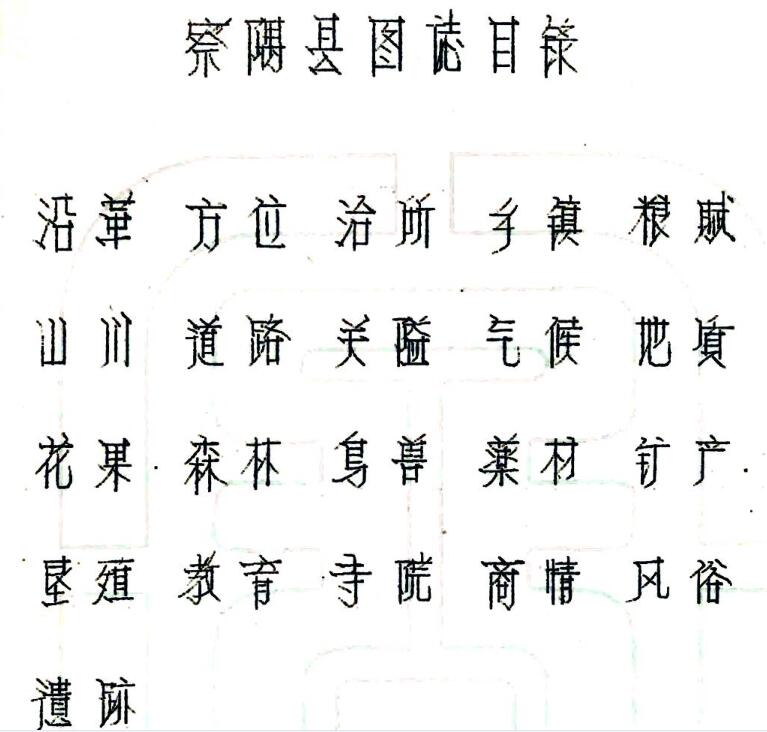 察隅县图誌目録
沿革 方位 治所 乡镇 粮赋
山川 道路 关隘 气候 地質
花果 森林 鸟兽 薬材 矿产
垦殖 教育 寺院 商情 风俗
遺跡